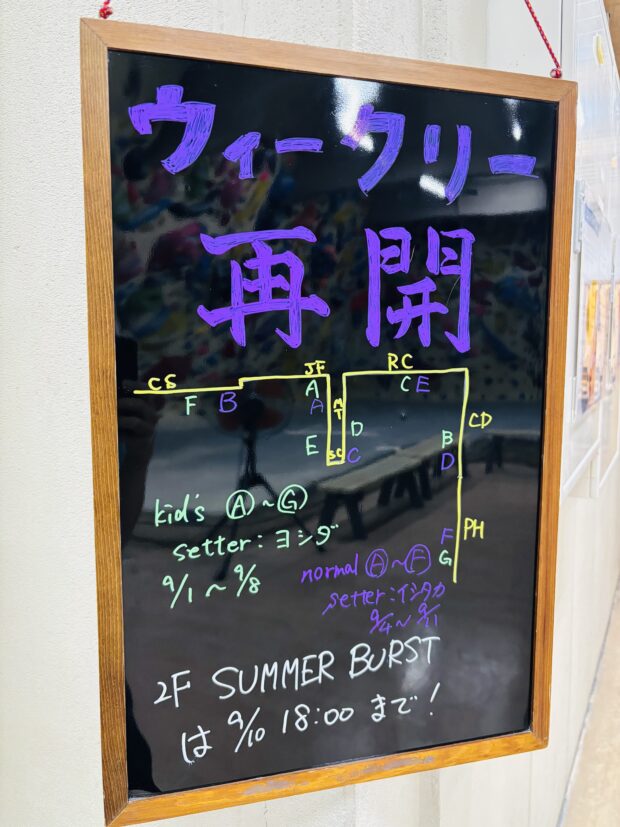 ウィークリー
再開
CS
JF
RC
F
B
A
A
MT
C
E
E
D
SC
C
B
D
CD
F
G
PH
kid's Ⓐ～Ⓖ
setter：ヨシダ
9/1～9/8
normal Ⓐ～Ⓕ
setter：イシタカ
9/4～9/11
2F SUMMER BURST
は 9/10 18:00 まで！